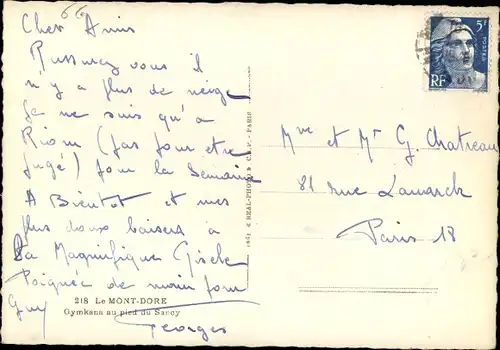 66
Cher Amis
Rassurez vous il
n'y a plus de neige
Je ne suis qu'a
Riom (pas pour etre
jugé) pour la semaine
A Bientot et mes
plus doux baisers a
La Magnifique Gisele
Poignée de main pour
Guy
Georges
218 Le MONT-DORE
Gymkana au pied du Sancy
REAL-PHOTO C.A.P. - PARIS
5F
POSTES
RF
Mme et Mr G. Chatreau
81 rue Lamarck
Paris 18